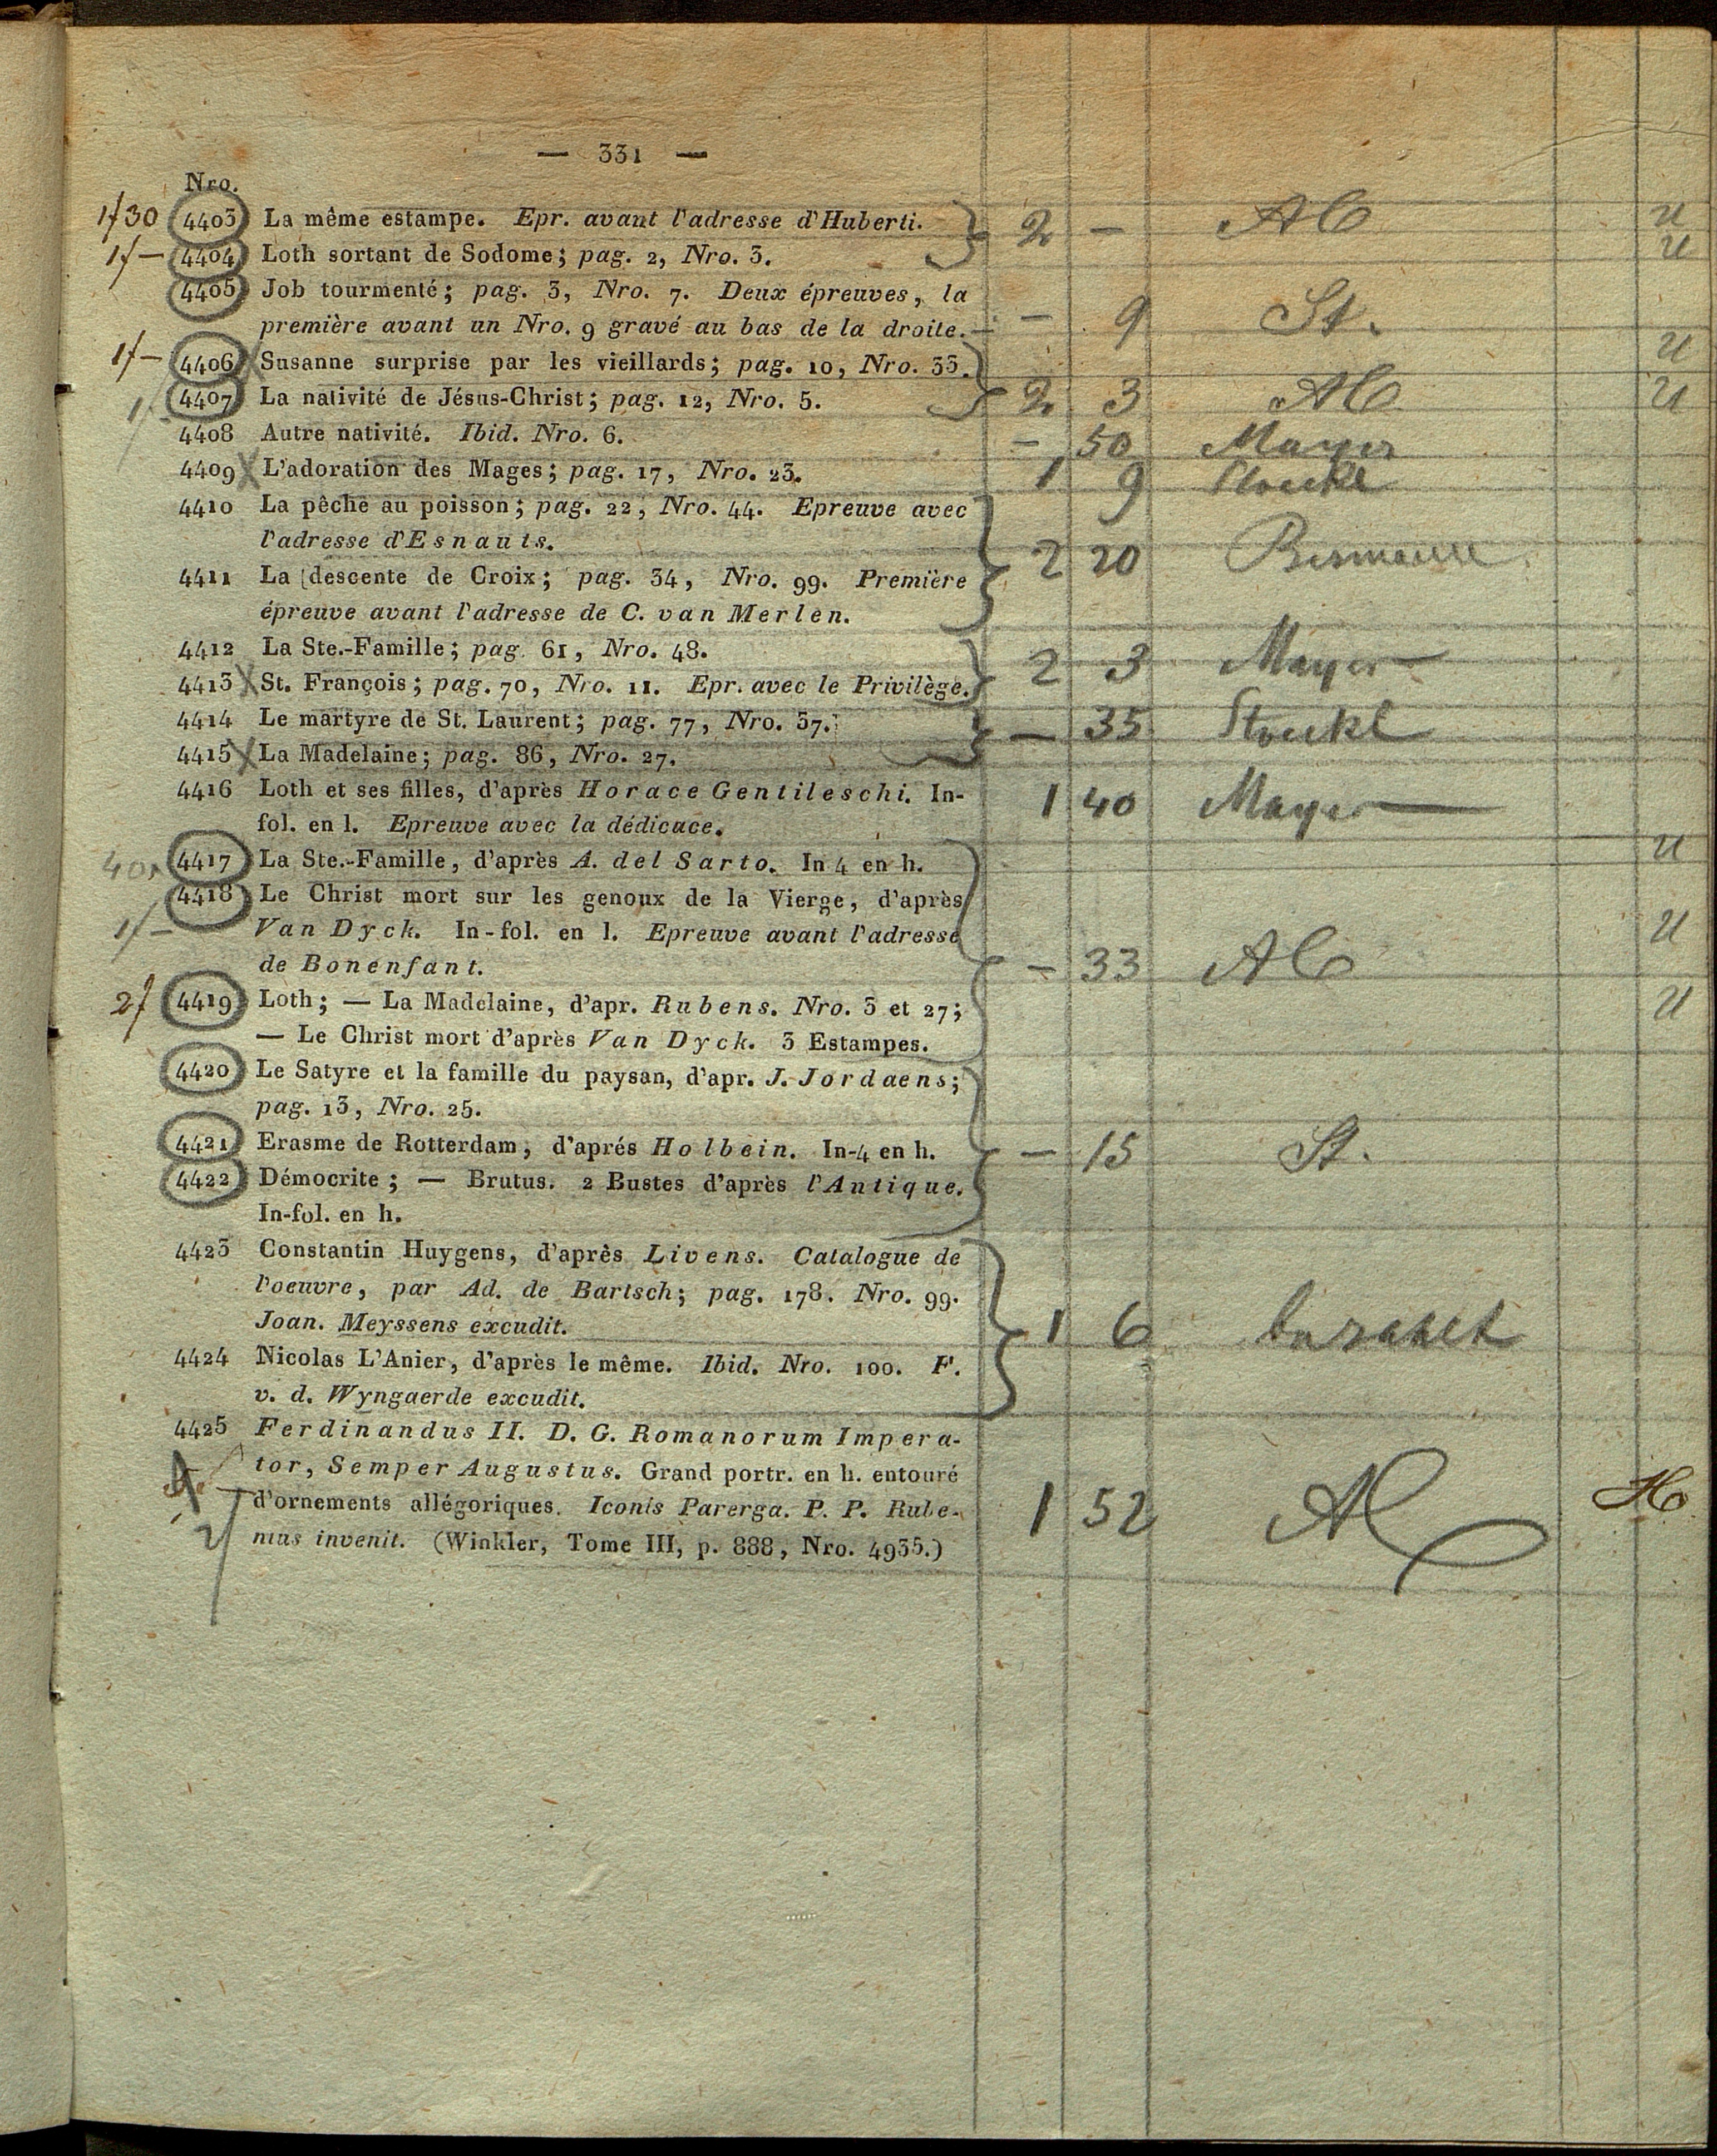 — 331 —
Nro.
1f30 4403 La même estampe. Epr. avant l'adresse d'Huberti. 2 — u
1f— 4404 Loth sortant de Sodome; pag. 2, Nro. 3. u
4405 Job tourmenté; pag. 3, Nro. 7. Deux épreuves, la
première avant un Nro. 9 gravé au bas de la droite. — 9 St.
1f— 4406 Susanne surprise par les vieillards; pag. 10, Nro. 33. u
4407 La nativité de Jésus-Christ; pag. 12, Nro. 5. 2 3 u
4408 Autre nativité. Ibid. Nro. 6. — 50 Mayer
4409 X L'adoration des Mages; pag. 17, Nro. 23. 1 9 Stoeckl
4410 La pêche au poisson; pag. 22, Nro. 44. Epreuve avec
l'adresse d'Esnauts. 2 20
4411 La descente de Croix; pag. 34, Nro. 99. Première
épreuve avant l'adresse de C. van Merlen.
4412 La Ste.-Famille; pag. 61, Nro. 48. 2 3 Mayer
4413 X St. François; pag. 70, Nro. 11. Epr. avec le Privilège.
4414 Le martyre de St. Laurent; pag. 77, Nro. 37. — 35 Stoeckl
4415 X La Madelaine; pag. 86, Nro. 27.
4416 Loth et ses filles, d'après Horace Gentileschi. In- 1 40 Mayer
fol. en l. Epreuve avec la dédicace.
4417 La Ste.-Famille, d'après A. del Sarto. In 4 en h. u
4418 Le Christ mort sur les genoux de la Vierge, d'après
1f— Van Dyck. In-fol. en l. Epreuve avant l'adresse u
de Bonenfant. — 33
2f 4419 Loth; — La Madelaine, d'apr. Rubens. Nro. 3 et 27; u
— Le Christ mort d'après Van Dyck. 3 Estampes.
4420 Le Satyre et la famille du paysan, d'apr. J. Jordaens;
pag. 13, Nro. 25.
4421 Erasme de Rotterdam, d'aprés Holbein. In-4 en h. — 15 St.
4422 Démocrite; — Brutus. 2 Bustes d'après l'Antique.
In-fol. en h.
4423 Constantin Huygens, d'après Livens. Catalogue de
l'oeuvre, par Ad. de Bartsch; pag. 178. Nro. 99.
Joan. Meyssens excudit. 1 6
4424 Nicolas L'Anier, d'après le même. Ibid. Nro. 100. F.
v. d. Wyngaerde excudit.
4425 Ferdinandus II. D. G. Romanorum Impera-
tor, Semper Augustus. Grand portr. en h. entouré
d'ornements allégoriques. Iconis Parerga. P. P. Rube- 1 52
nius invenit. (Winkler, Tome III, p. 888, Nro. 4935.)